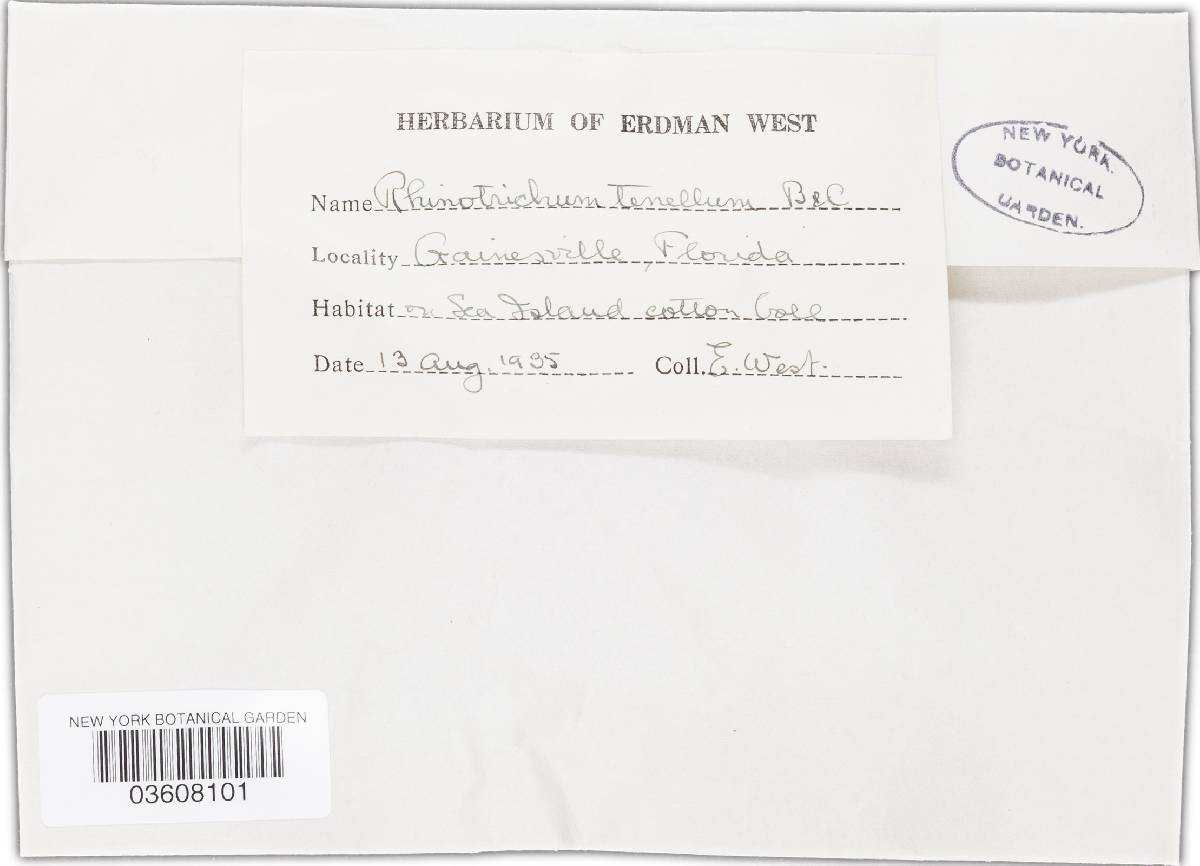 HERBARIUM OF ERDMAN WEST
Name Rhinotrichum tenellum B&C
Locality Gainesville, Florida
Habitat on Sea Island cotton boll
Date 13 Aug. 1935 Coll. E. West.
NEW YORK
BOTANICAL
GARDEN.
NEW YORK BOTANICAL GARDEN
03608101